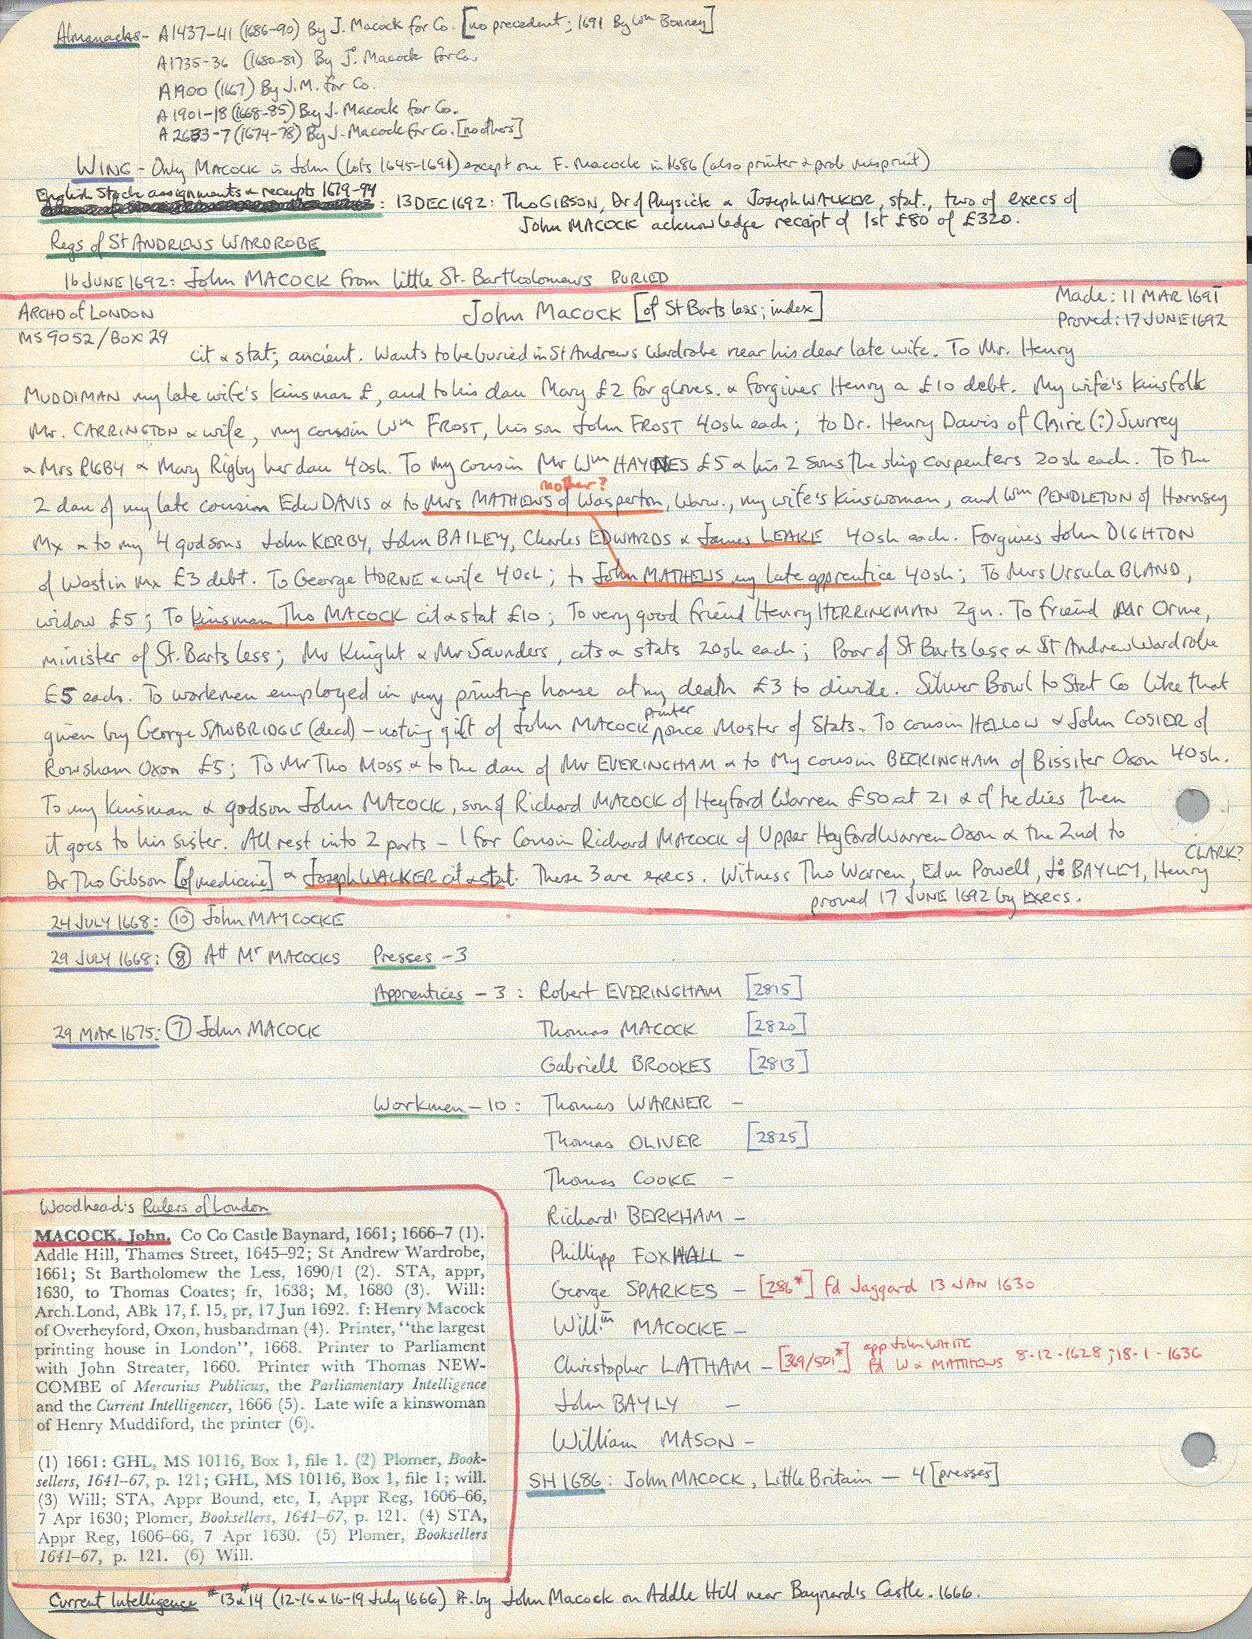 Almanacks - A1437-41 (1686-90) By J. Macock for Co. [no precedent; 1691 By Wm Bonney]
A1735-36 (1680-81) By J. Macock for Co.
A1900 (1667) By J.M. for Co.
A1901-18 (1668-85) By J. Macock for Co.
A2633-7 (1674-78) By J. Macock for Co. [no others]
WING - Only MACOCK is John (lots 1645-1691) except one F. Macock in 1686 (also printer & prob misprint)
English Stock assignments & receipts 1679-94
: 13 DEC 1692: Tho GIBSON, Dr of Physick & Joseph WALKER, stat., two of execs of
John MACOCK acknowledge receipt of 1st £80 of £320.
Regs of St ANDREWS WARDROBE
16 JUNE 1692: John MACOCK from little St. Bartholomews BURIED
ARCHD of LONDON
MS 9052/Box 29
John Macock [of St Barts less; index]
Made: 11 MAR 1691
Proved: 17 JUNE 1692
cit & stat; ancient. Wants to be buried in St Andrews Wardrobe near his dear late wife. To Mr. Henry
MUDDIMAN my late wife's kinsman £, and to his dau Mary £2 for gloves. & forgives Henry a £10 debt. My wife's kinsfolk
Mr. CARRINGTON & wife, my cousin Wm FROST, his son John FROST 40sh each; to Dr. Henry Davis of Claire (?) Surrey
& Mrs RIGBY & Mary Rigby her dau 40sh. To my cousin Mr Wm HAYNES £5 & his 2 sons the ship carpenters 20sh each. To the
mother?
2 dau of my late cousin Edw DAVIS & to Mrs MATHEWS of Wasperton, Warw., my wife's kinswoman, and Wm PENDLETON of Hornsey
Mx & to my 4 godsons John KERBY, John BAILEY, Charles EDWARDS & James LEAKE 40sh each. Forgives John DIGHTON
of Westin Mx £3 debt. To George HORNE & wife 40sh; to John MATHEWS my late apprentice 40sh; To Mrs Ursula BLAND,
widow £5; To kinsman Tho MACOCK cit & stat £10; To very good friend Henry HERRINKMAN 2gn. To friend Mr Orme,
minister of St. Barts less; Mr Knight & Mr Saunders, cits & stats 20sh each; Poor of St Barts less & St Andrew Wardrobe
£5 each. To workmen employed in my printing house at my death £3 to divide. Silver Bowl to Stat Co like that
given by George SAWBRIDGE (decd) - noting gift of John MACOCK printer once Master of Stats. To cousin HELLOW & John COSIER of
Rowsham Oxon £5; To Mr Tho Moss & to the dau of Mr EVERINGHAM & to My cousin BECKINGHAM of Bissiter Oxon 40sh.
To my kinsman & godson John MACOCK, son of Richard MACOCK of Heyford Warren £50 at 21 & if he dies then
it goes to his sister. All rest into 2 parts - 1 for Cousin Richard MACOCK of Upper Heyford Warren Oxon & the 2nd to
CLARK?
Dr Tho Gibson [of medicine] & Joseph WALKER cit & stat. These 3 are execs. Witness Tho Warren, Edm Powell, Jo BAYLEY, Henry
proved 17 JUNE 1692 by Execs.
24 JULY 1668: (10) John MAYCOCKE
29 JULY 1668: (8) Att Mr MACOCKS Presses - 3
Apprentices - 3: Robert EVERINGHAM [2815]
29 MAR 1675: (7) John MACOCK Thomas MACOCK [2820]
Gabriell BROOKES [2813]
Workmen - 10: Thomas WARNER -
Thomas OLIVER [2825]
Thomas COOKE -
Richard BERKHAM -
Phillipp FOXHALL -
George SPARKES - [286*] Fd Jaggard 13 JAN 1630
Willm MACOCKE -
Christopher LATHAM - [369/501*] app John WHITE
Fd Wx MATTHEWS 8-12-1628; 18-1-1636
John BAYLY -
William MASON -
SH 1686: John MACOCK, Little Britain - 4 [presses]
Woodhead's Rulers of London
MACOCK, John. Co Co Castle Baynard, 1661; 1666-7 (1).
Addle Hill, Thames Street, 1645-92; St Andrew Wardrobe,
1661; St Bartholomew the Less, 1690/1 (2). STA, appr,
1630, to Thomas Coates; fr, 1638; M, 1680 (3). Will:
Arch.Lond, ABk 17, f. 15, pr, 17 Jun 1692. f: Henry Macock
of Overheyford, Oxon, husbandman (4). Printer, "the largest
printing house in London", 1668. Printer to Parliament
with John Streater, 1660. Printer with Thomas NEW-
COMBE of Mercurius Publicus, the Parliamentary Intelligence
and the Current Intelligencer, 1666 (5). Late wife a kinswoman
of Henry Muddiford, the printer (6).
(1) 1661: GHL, MS 10116, Box 1, file 1. (2) Plomer, Book-
sellers, 1641-67, p. 121; GHL, MS 10116, Box 1, file 1; will.
(3) Will; STA, Appr Bound, etc, I, Appr Reg, 1606-66,
7 Apr 1630; Plomer, Booksellers, 1641-67, p. 121. (4) STA,
Appr Reg, 1606-66, 7 Apr 1630. (5) Plomer, Booksellers
1641-67, p. 121. (6) Will.
Current Intelligence #13 & #14 (12-16 & 16-19 July 1666) Pr. by John Macock on Addle Hill near Baynard's Castle. 1666.